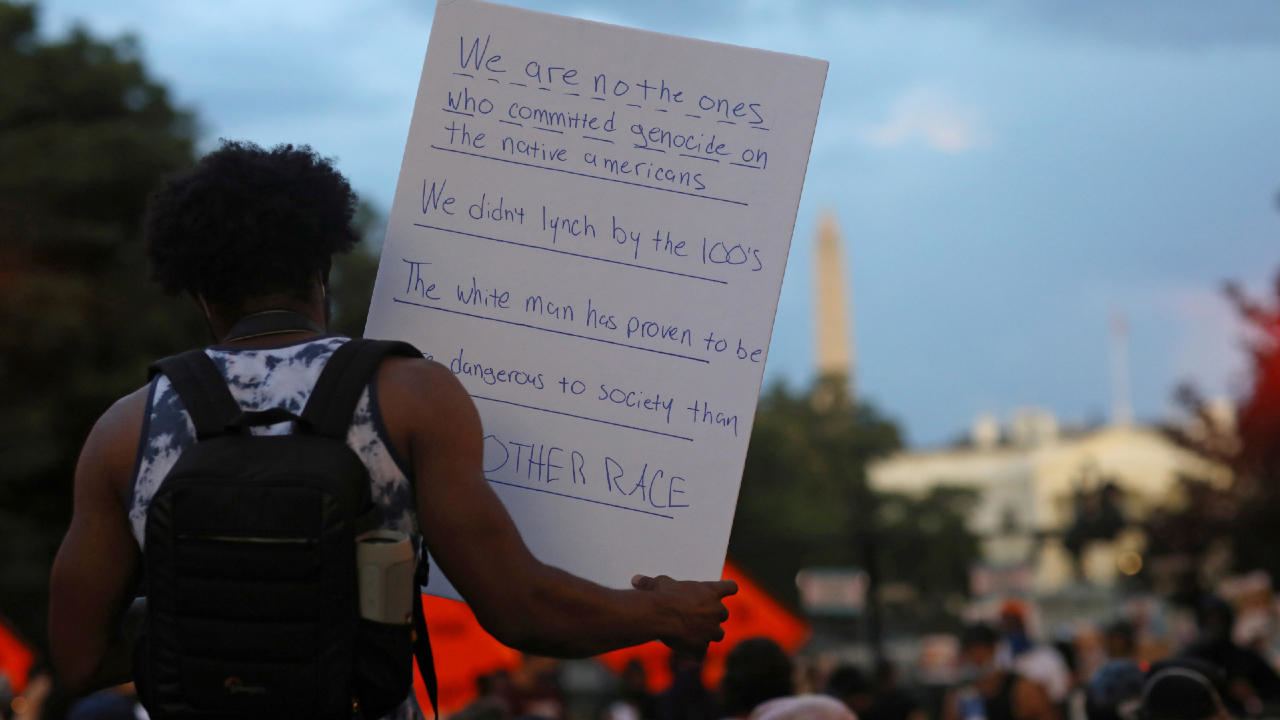 We are not the ones
who committed genocide on
the native americans
We didn't lynch by the 100's
The white man has proven to be
dangerous to society than
OTHER RACE